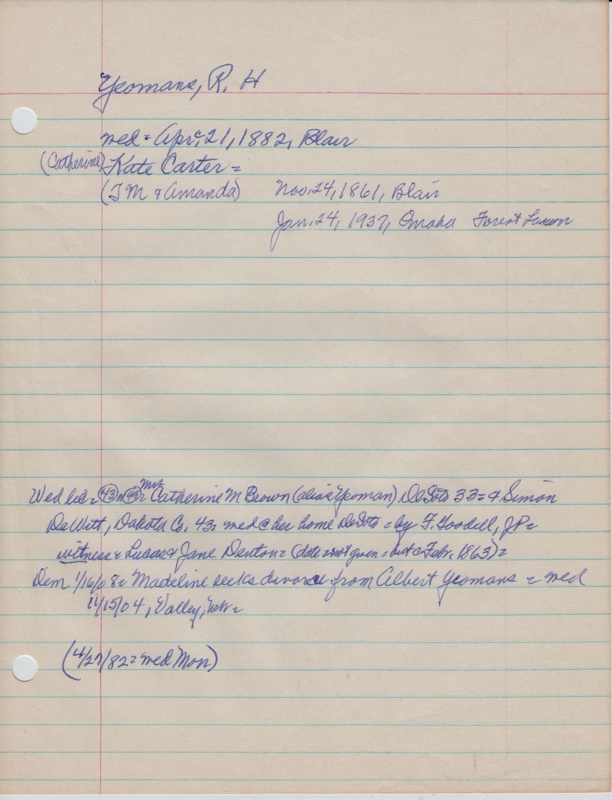 Yeomans, R. H
wed = Apr. 21, 1882, Blair
(Catherine) Kate Carter =
(J M & Amanda) Nov. 24, 1861, Blair
Jan. 24, 1937, Omaha Forest Lawn
Wed lic = 43 Mrs Catherine M Brown (alias Yeoman) DeSoto 33 = & Simon
DeWitt, Dakota Co, 43, wed @ her home DeSoto = by F. Goodell, JP =
witness = Lucas & Jane Denton = (date not given = but c Feb. 1863) =
Dem 1/16/08 = Madeline seeks divorce from Albert Yeomans = wed
11/15/04, Valley, Neb =
(4/27/82 = wed Mon)